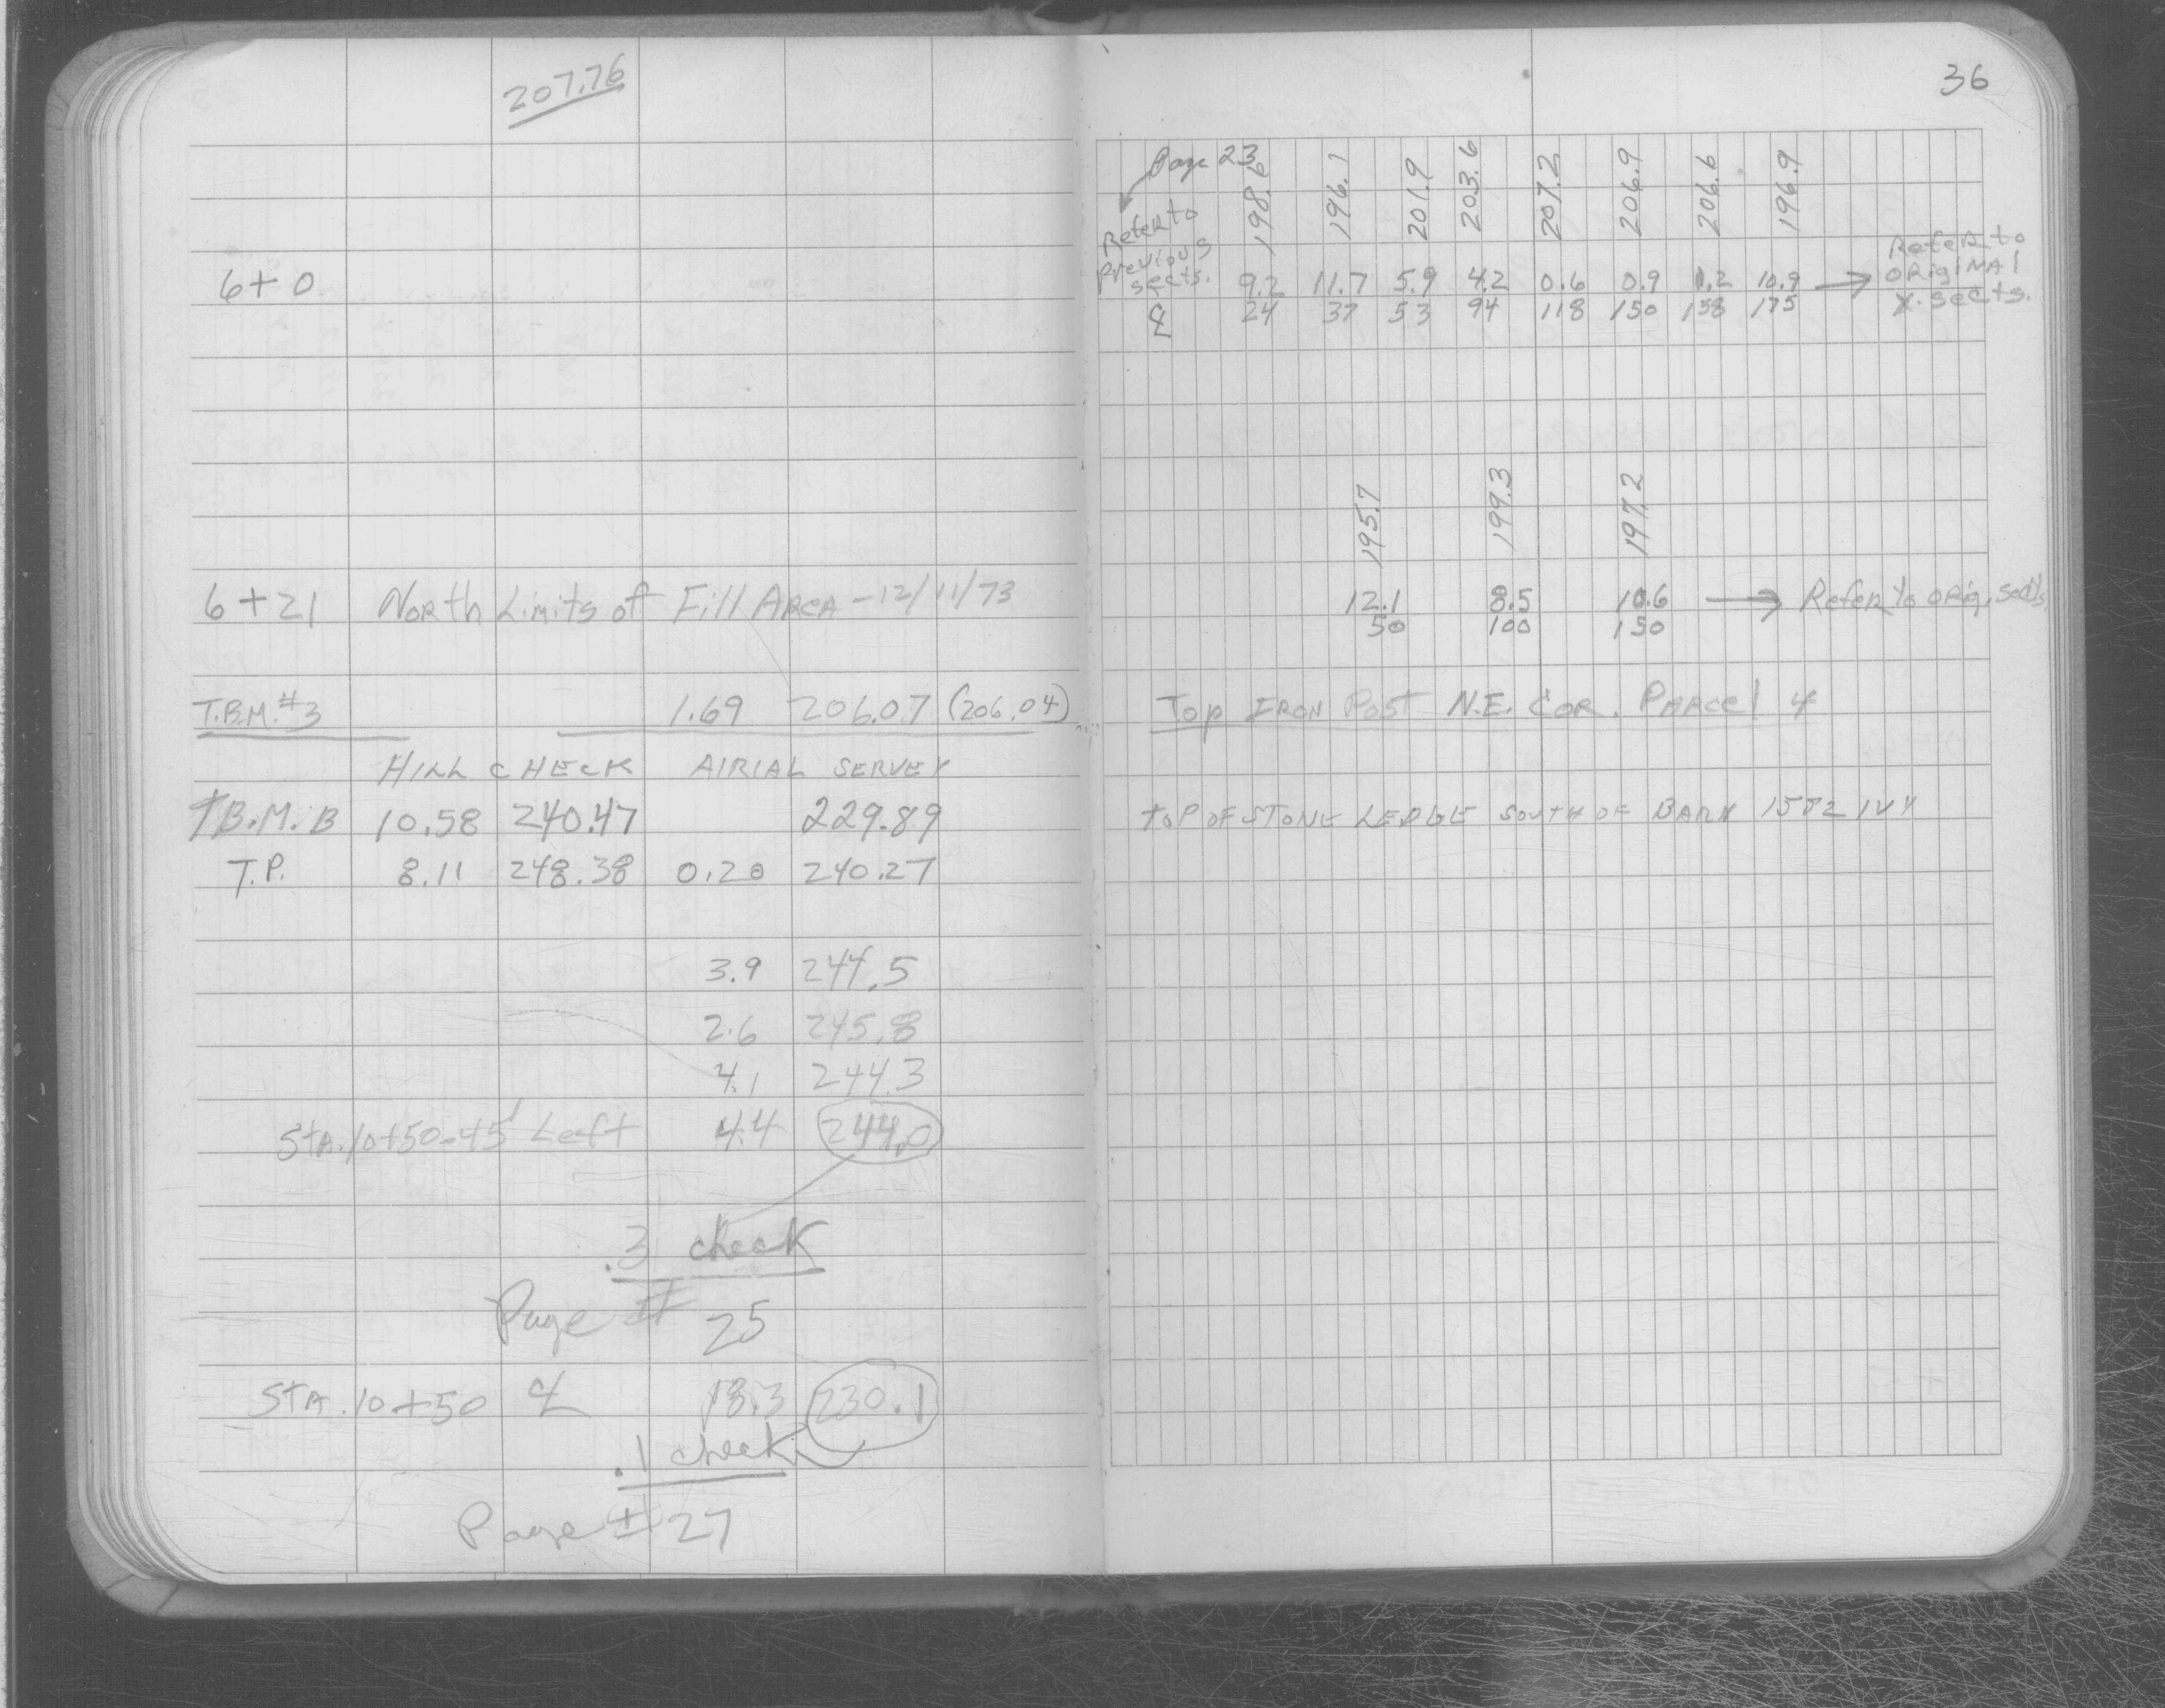 207.76
6+0
6+21 North Limits of Fill Area - 12/11/73
T.B.M.#3 1.69 206.07 (206.04)
HILL CHECK AIRIAL SERVEY
TB.M. B 10.58 240.47 229.89
T.P. 8.11 248.38 0.20 240.27
3.9 244.5
2.6 245.8
4.1 244.3
STA. 10+50-45' Left 4.4 244.0
.3 check
Page # 25
STA. 10+50 ℄ 18.3 230.1
.1 check
Page # 27
36
Page 23
198.6 196.1 201.9 203.6 207.2 206.9 206.6 196.9
Refer to
Previous
sects.
9.2 11.7 5.9 4.2 0.6 0.9 1.2 10.9 → Refer to
original
X-sects.
℄ 24 37 53 94 118 150 158 175
195.7 199.3 197.2
12.1 8.5 10.6 → Refer to orig. sects.
50 100 150
Top Iron Post N.E. Cor. Parcel 4
TOP OF STONE LEDGE SOUTH OF BARN 1582